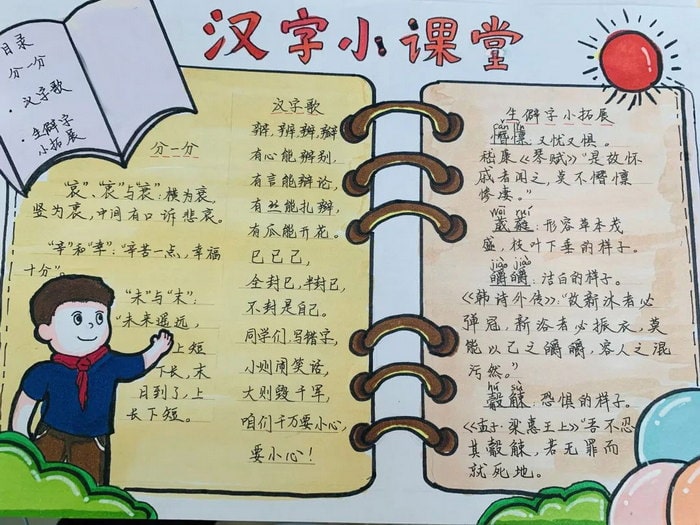 汉字小课堂
目录
分一分
·汉字歌
·生僻字
小拓展
分一分
“哀”、“衷”与“衰”:横为衰,
竖为衷,中间有口诉悲哀。
“辛”和“幸”:“辛苦一点,幸福
十分”。
“未”与“末”:
“未来遥远,
上短
下长,末
日到了,上
长下短。
汉字歌
辨,辩,辫,瓣
有心能辨别,
有言能辩论,
有丝能扎辫,
有瓜能开花。
已已己,
全封已,半封已,
不封是自己。
同学们,写错字,
小则闹笑话,
大则毁千军,
咱们千万要小心,
要小心!
生僻字小拓展
cǎn lǐn
懵懍:又忧又惧。
嵇康《琴赋》“是故怀
戚者闻之,莫不憯懍
惨凄。”
wēi ruí
葳蕤:形容草木茂
盛,枝叶下垂的样子。
jiào jiào
皭皭:洁白的样子。
《韩诗外传》:“故新沐者必
弹冠,新浴者必振衣,莫
能以己之皭皭,容人之混
污然。”
hú sù
觳觫:恐惧的样子。
《孟子·梁惠王上》“吾不忍
其觳觫,若无罪而
就死地。